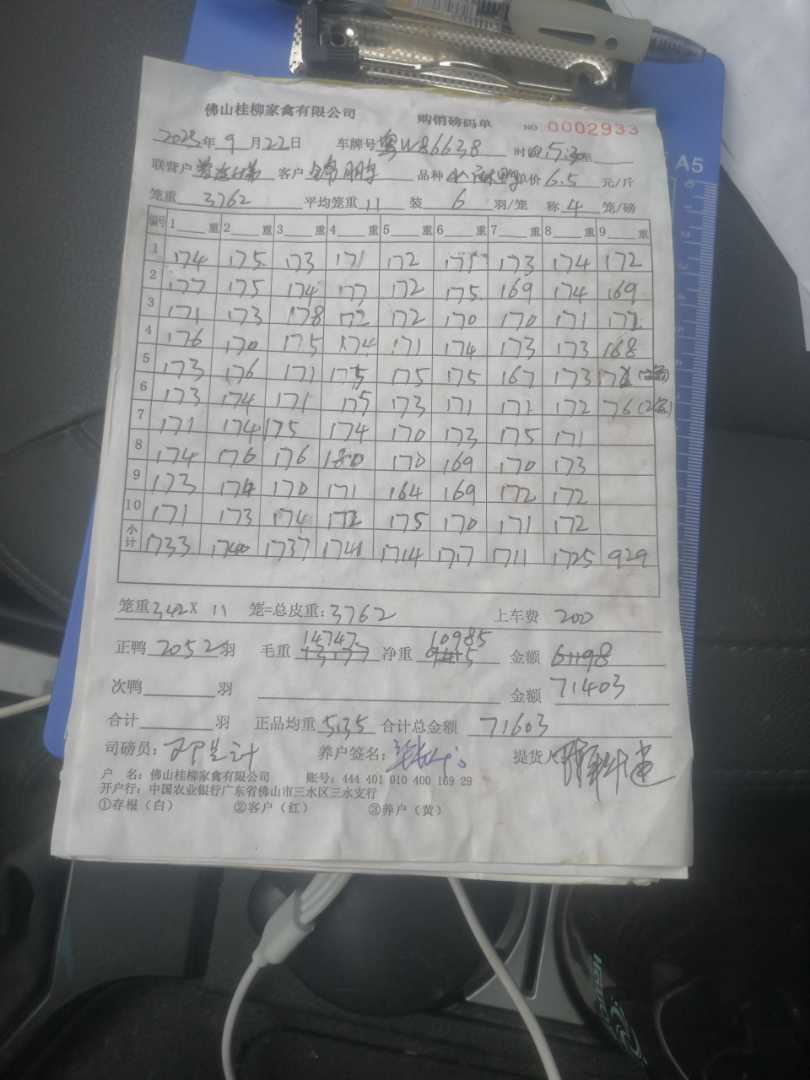 佛山桂柳家禽有限公司 购销磅码单 NO 0002933
2025年9月22日 车牌号粤W86638 时
联营户 客户 锦鹏 品种 单价6.5 元/斤
笼重 3762 平均笼重 11 装 6 羽/笼 称 4 笼/磅
编号 1 重 2 重 3 重 4 重 5 重 6 重 7 重 8 重 9 重
1 174 175 173 171 172 171 173 174 172
2 177 175 174 177 172 175 169 174 169
3 171 173 178 172 172 170 170 171
4 176 170 175 174 171 174 173 173 168
5 173 176 171 175 175 175 167 173
6 173 174 171 175 173 171 171 172 76
7 171 174 175 174 170 173 175 171
8 174 176 176 180 170 169 170 173
9 173 174 170 171 164 169 172 172
10 171 173 174 172 175 170 171 172
小计 1733 1740 1737 1741 1714 1717 1711 1725 929
笼重342×11 笼=总皮重:3762 上车费 200
14747 10985
正鸭 2052 羽 毛重 净重 金额
次鸭 羽 金额 71403
合计 羽 正品均重 5.35 合计总金额 71603
司磅员: 养户签名: 提货人
户 名: 佛山桂柳家禽有限公司 账号: 444 401 010 400 169 29
开户行: 中国农业银行广东省佛山市三水区三水支行
①存根（白） ②客户（红） ③养户（黄）
A5